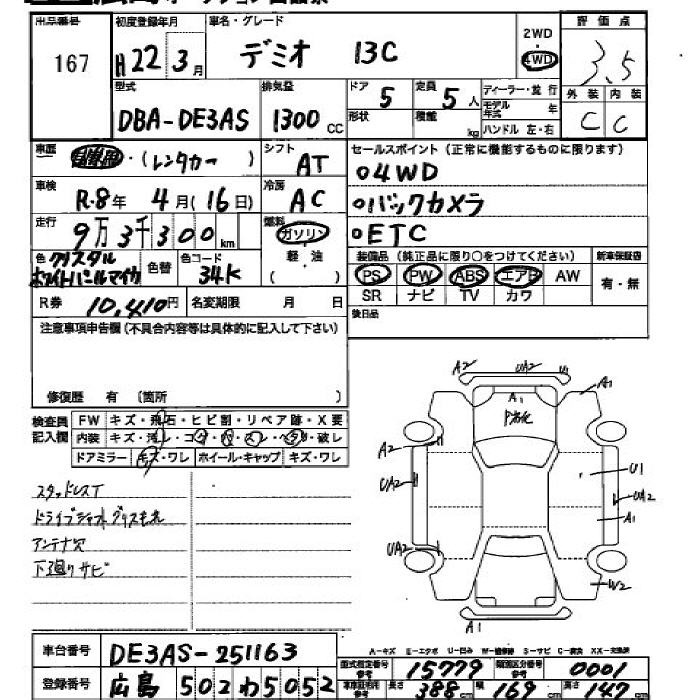 出品番号 初度登録年月 車名・グレード 2WD 評価点
167 H22年3月 デミオ 13C ・ 4WD 3.5
型式 排気量 ドア 5 定員 5人 ディーラー・並行 外装 内装
DBA-DE3AS 1300cc 形状 積載 kg モデル年式 年 C C
ハンドル 左・右
車歴 自家用・(レンタカー) シフト AT セールスポイント(正常に機能するものに限ります)
車検 R.8年 4月(16日) 冷房 AC o4WD
oバックカメラ
走行 9万3千300km 燃料 ガソリン oETC
色 クリスタル 色替 色コード 軽・油 装備品(純正品に限り○をつけてください) 新車保証書
ホワイトパールマイカ 34K ( ) PS PW ABS エアB AW 有・無
R券 10,410円 名変期限 月 日 SR ナビ TV カワ
注意事項申告欄(不具合内容等は具体的に記入して下さい) 後日品
修復歴 有 (箇所 )
検査員 FW キズ・飛石・ヒビ割・リペア跡・X要
記入欄 内装 キズ・汚レ・コゲ・穴・スレ・ヘタリ・破レ
ドアミラー キズ・ワレ ホイール・キャップ キズ・ワレ
スタッドレスT
ドライブシャフトグリス モレ
アンテナ欠
下廻りサビ
A2 UA2 U1
A1 A1
A2 U1
UA2 UA2
A1
UA2
W2
A1
A-キズ E-エクボ U-凹み W-補修跡 S-サビ C-腐食 XX-交換済
車台番号 DE3AS-251163
型式指定番号 15779 類別区分番号 0001
登録番号 広島 502 わ 5052
長さ 388cm 幅 169cm 高さ 147cm